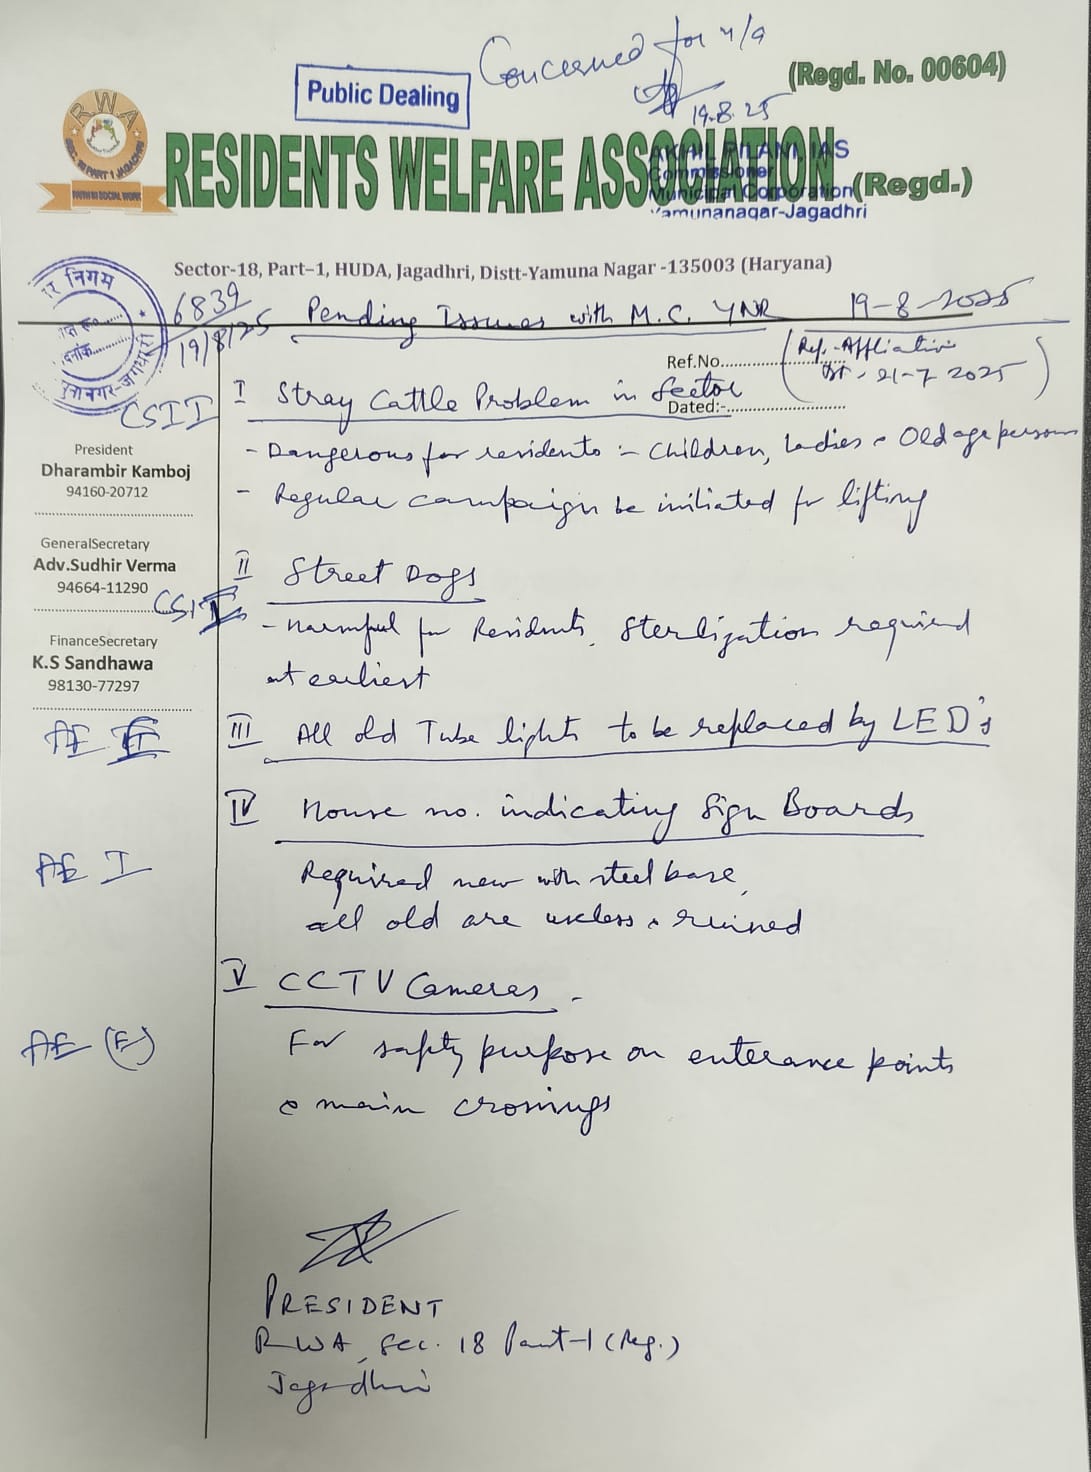 Concerned for n/a
19.8.25
Public Dealing
(Regd. No. 00604)
RWA
SEC. 18 PART 1 JAGADHRI
FAITH IN SOCIAL WORK
RESIDENTS WELFARE ASSOCIATION (Regd.)
AKHIL PILANI, IAS
Commissioner
Municipal Corporation
Yamunanagar-Jagadhri
Sector-18, Part-1, HUDA, Jagadhri, Distt-Yamuna Nagar -135003 (Haryana)
6839
19/8/25
Pending Issues with M.C. YNR 19-8-2025
Ref.No.
(Ref.
Dt. 21-7 2025)
Dated:-
CSI I
I Stray Cattle Problem in Sector
- Dangerous for residents :- Children, Ladies & Old age persons
- Regular campaign be initiated for lifting
President
Dharambir Kamboj
94160-20712
GeneralSecretary
Adv.Sudhir Verma
94664-11290
FinanceSecretary
K.S Sandhawa
98130-77297
II Street Dogs
CSI
- Harmful for Residents, Sterlization required
at earliest
AE II
III All old Tube lights to be replaced by LED's
IV House no. indicating Sign Boards
AE I
Required new with steel base,
all old are useless & ruined
V CCTV Cameras -
AE (E)
For safty purpose on enterance points
& main crossings
PRESIDENT
RWA, Sec. 18 Part-1 (Reg.)
Jagadhri